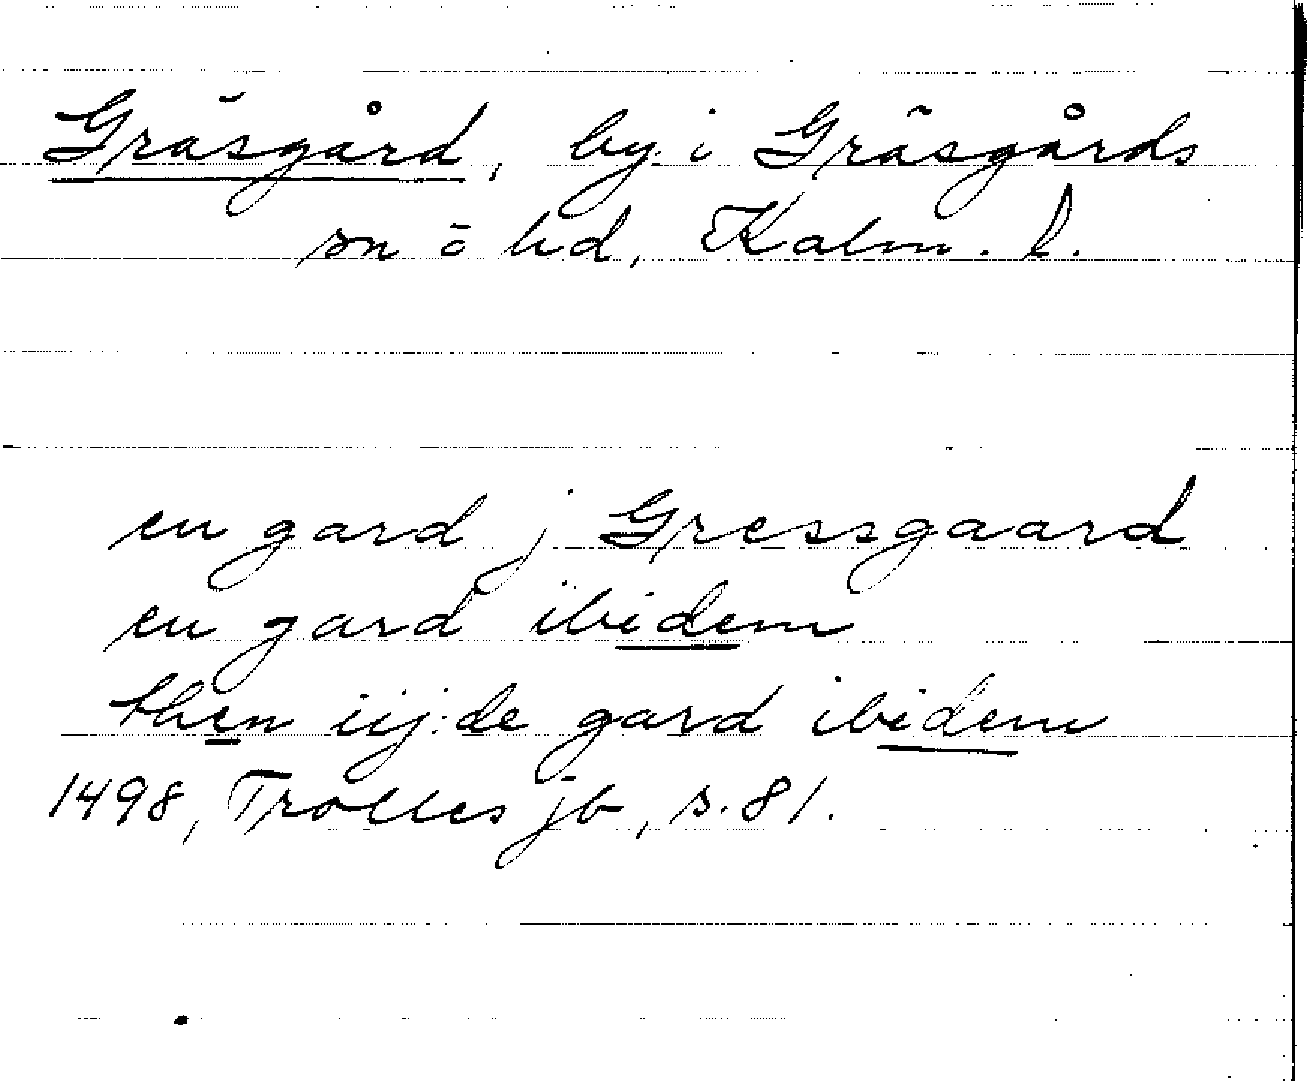 Gräsgård, by i Gräsgårds
sn o hd, Kalm. l.
en gard j Gressgaard
en gard ibidem
then iij:de gard ibidem
1498, Trolles jb, s. 81.